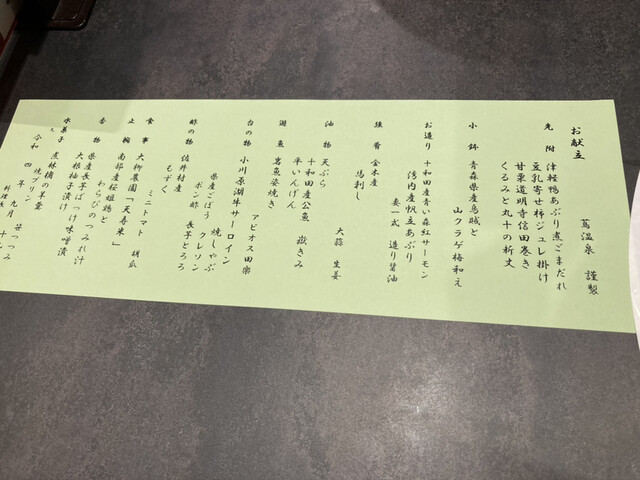 お献立
蔦温泉 謹製
先附 津軽鴨あぶり煮ごまだれ
豆乳寄せ柿ジュレ掛け
甘栗道明寺信田巻き
くるみと丸十の祈丈
小鉢 青森県産烏賊と
山クラゲ梅和え
お造り 十和田産青い森紅サーモン
湾内産帆立あぶり
妻一式 造り醤油
強肴 金木産
馬刺し
大蒜 生姜
油物 天ぷら
十和田産公魚 嶽きみ
平いんげん
温魚 岩魚姿焼き
アピオス田楽
台の物 小川原湖牛サーロイン
焼しゃぶ
県産ごぼう クレソン
ポン酢 長芋とろろ
酢の物 佐井村産
もずく
ミニトマト 胡瓜
食事 大柳農園「天寿米」
止椀 南部産桜姫鶏と
わらびのつみれ汁
香物 県産長芋ばっけ味噌漬
大根柚子漬け
水菓子 煮林檎の羊羹
焼プリン
令和四年九月
料理長